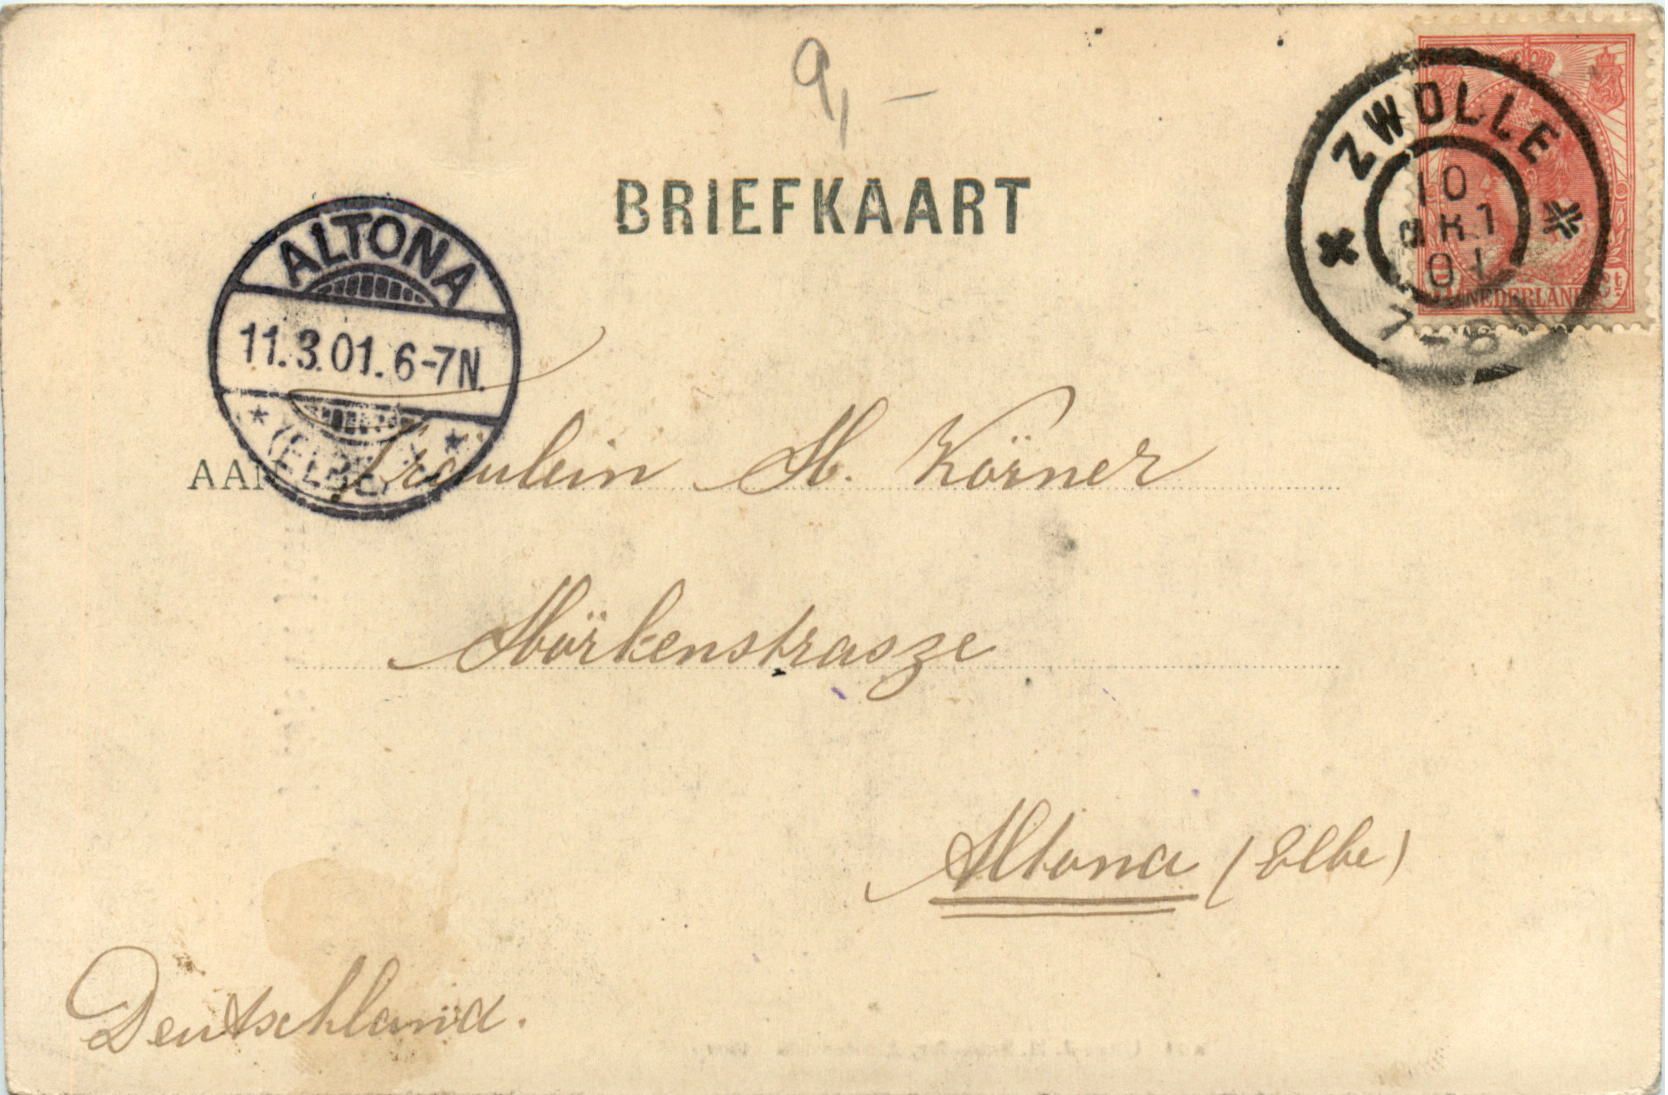 9,-
BRIEFKAART
ZWOLLE
10
MRT
01
7-8N
NEDERLAND
ALTONA
11.3.01.6-7N.
(ELBE)
AAN Fräulein H. Körner
Hörkenstrasze
Altona (Elbe)
Deutschland.